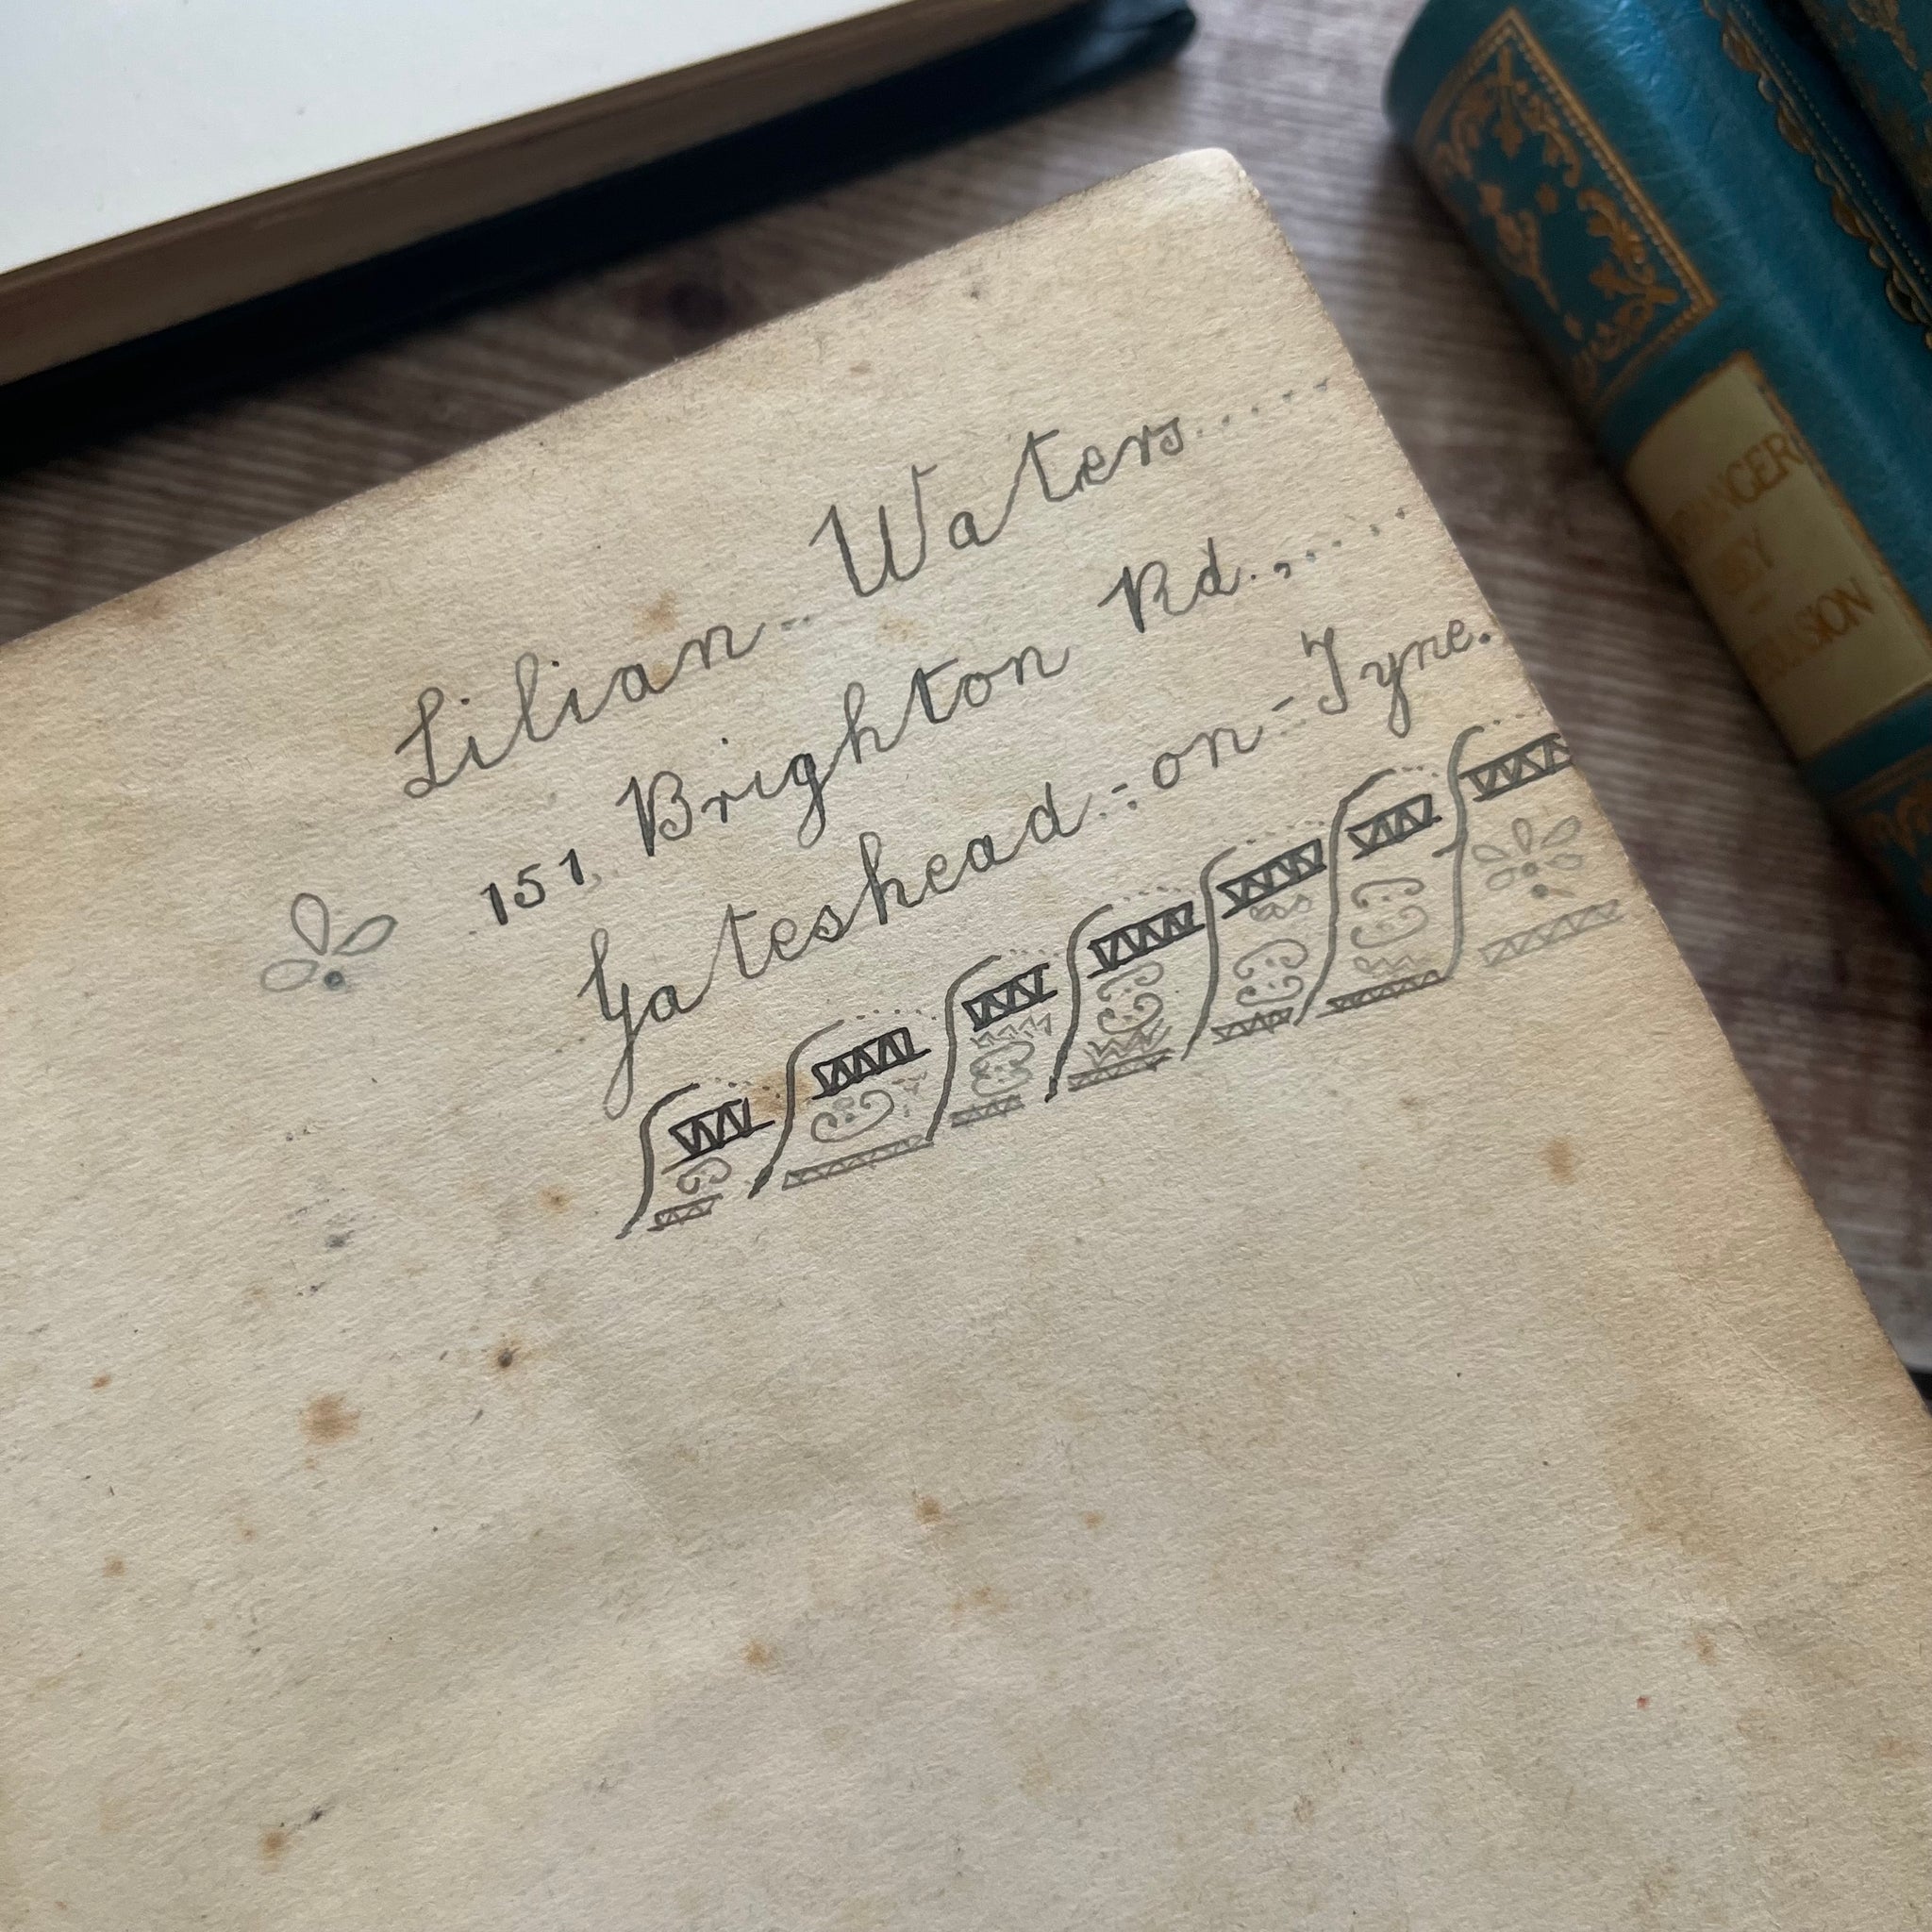 Lilian -- Waters.......
151, Brighton Rd.,.....
Gateshead-:on-Tyne.